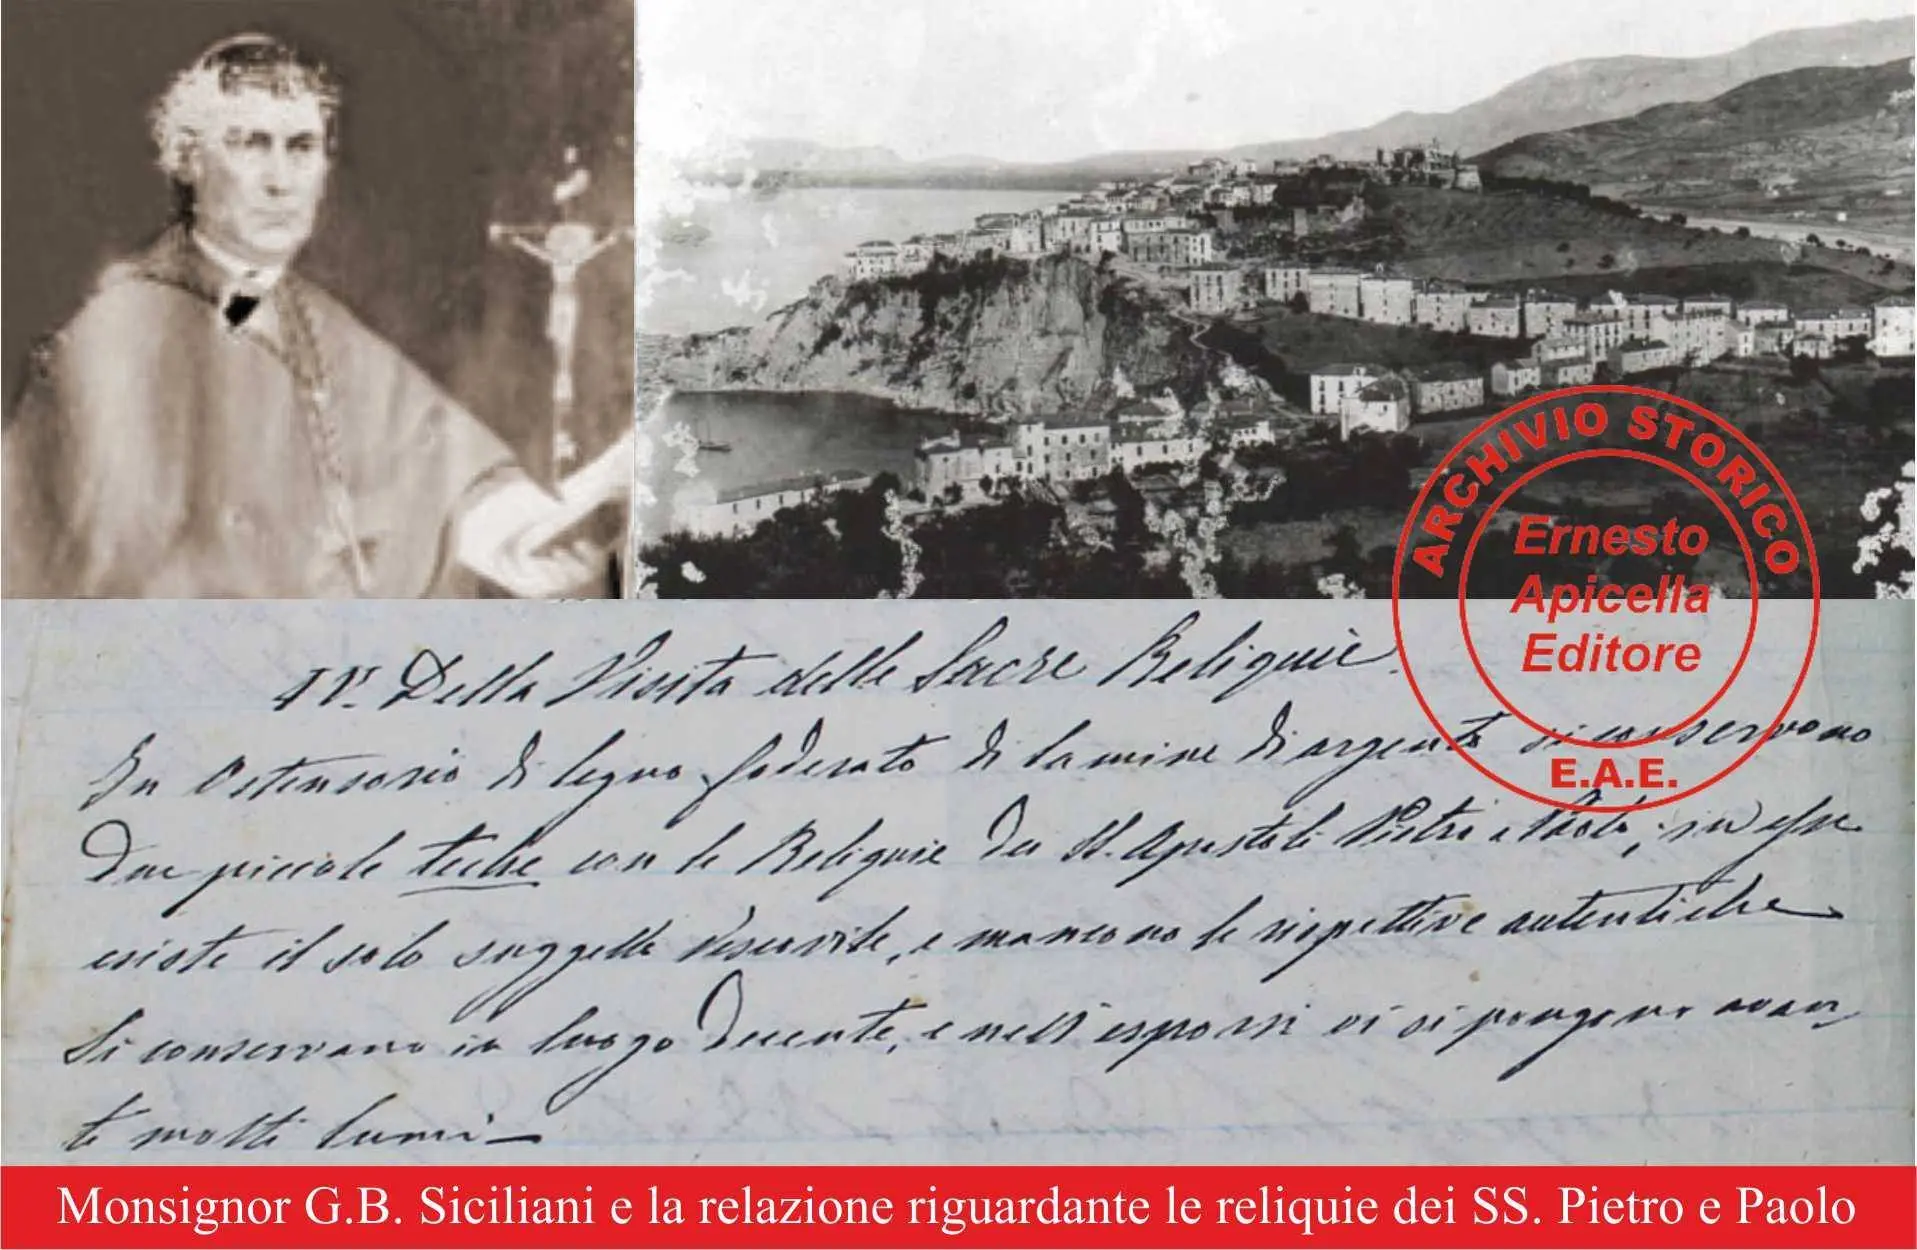 ARCHIVIO STORICO
Ernesto
Apicella
Editore
E.A.E.
IVº Della Visita delle Sacre Reliquie
In Ostensorio di legno foderato di lamine di argento si conservano
due piccole teche con le Reliquie dei SS. Apostoli Pietro e Paolo; in esse
esiste il solo suggello Vescovile, e mancono le rispettive autentiche
Si conservano in luogo decente, e nell'esporsi vi si pongono avan,
ti molti lumi —
Monsignor G.B. Siciliani e la relazione riguardante le reliquie dei SS. Pietro e Paolo